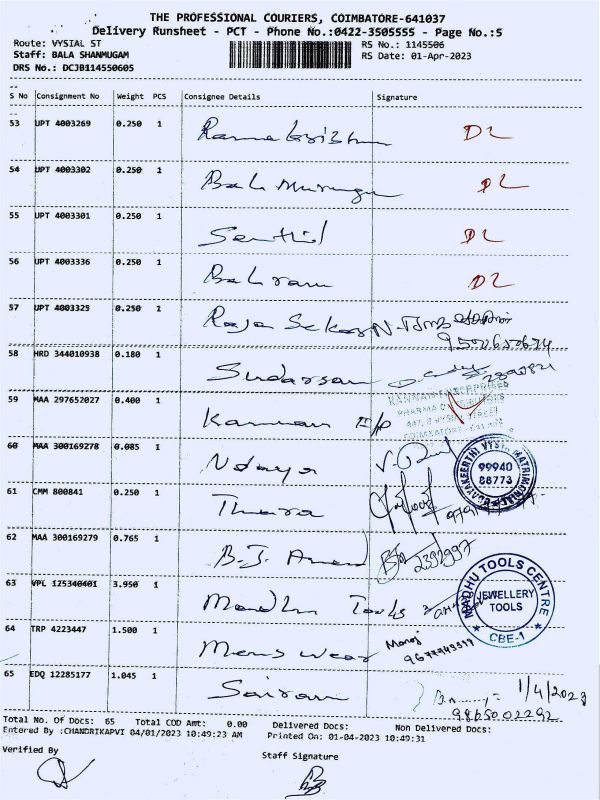 THE PROFESSIONAL COURIERS, COIMBATORE-641037
Delivery Runsheet - PCT - Phone No.:0422-3505555 - Page No.:5
Route: VYSIAL ST RS No.: 1145506
Staff: BALA SHANMUGAM RS Date: 01-Apr-2023
DRS No.: DCJB114550605
S No Consignment No Weight PCS Consignee Details Signature
53 UPT 4003269 0.250 1 Rama Krishna D2
54 UPT 4003302 0.250 1 Bala Murugan D2
55 UPT 4003301 0.250 1 Senthil D2
56 UPT 4003336 0.250 1 Balram D2
57 UPT 4003325 0.250 1 Raja Sekar
58 HRD 344010938 0.180 1 Sudarsan
59 MAA 297652027 0.400 1 Kannan E/P
KANNAN ENTERPRISES
PHARMA DISTRIBUTORS
60 MAA 300169278 0.085 1
99940
88773
61 CMM 800841 0.250 1
62 MAA 300169279 0.765 1 B.J. Anand 2392997
63 VPL 125340401 3.950 1 Madhu Tools
MADHU TOOLS CENTRE
JEWELLERY
TOOLS
CBE-1
64 TRP 4223447 1.500 1 Mens wear Manoj
65 EDQ 12285177 1.045 1 Sairam 1/4/2023
9865002292
Total No. Of Docs: 65 Total COD Amt: 0.00 Delivered Docs: Non Delivered Docs:
Entered By :CHANDRIKAPVI 04/01/2023 10:49:23 AM Printed On: 01-04-2023 10:49:31
Verified By Staff Signature